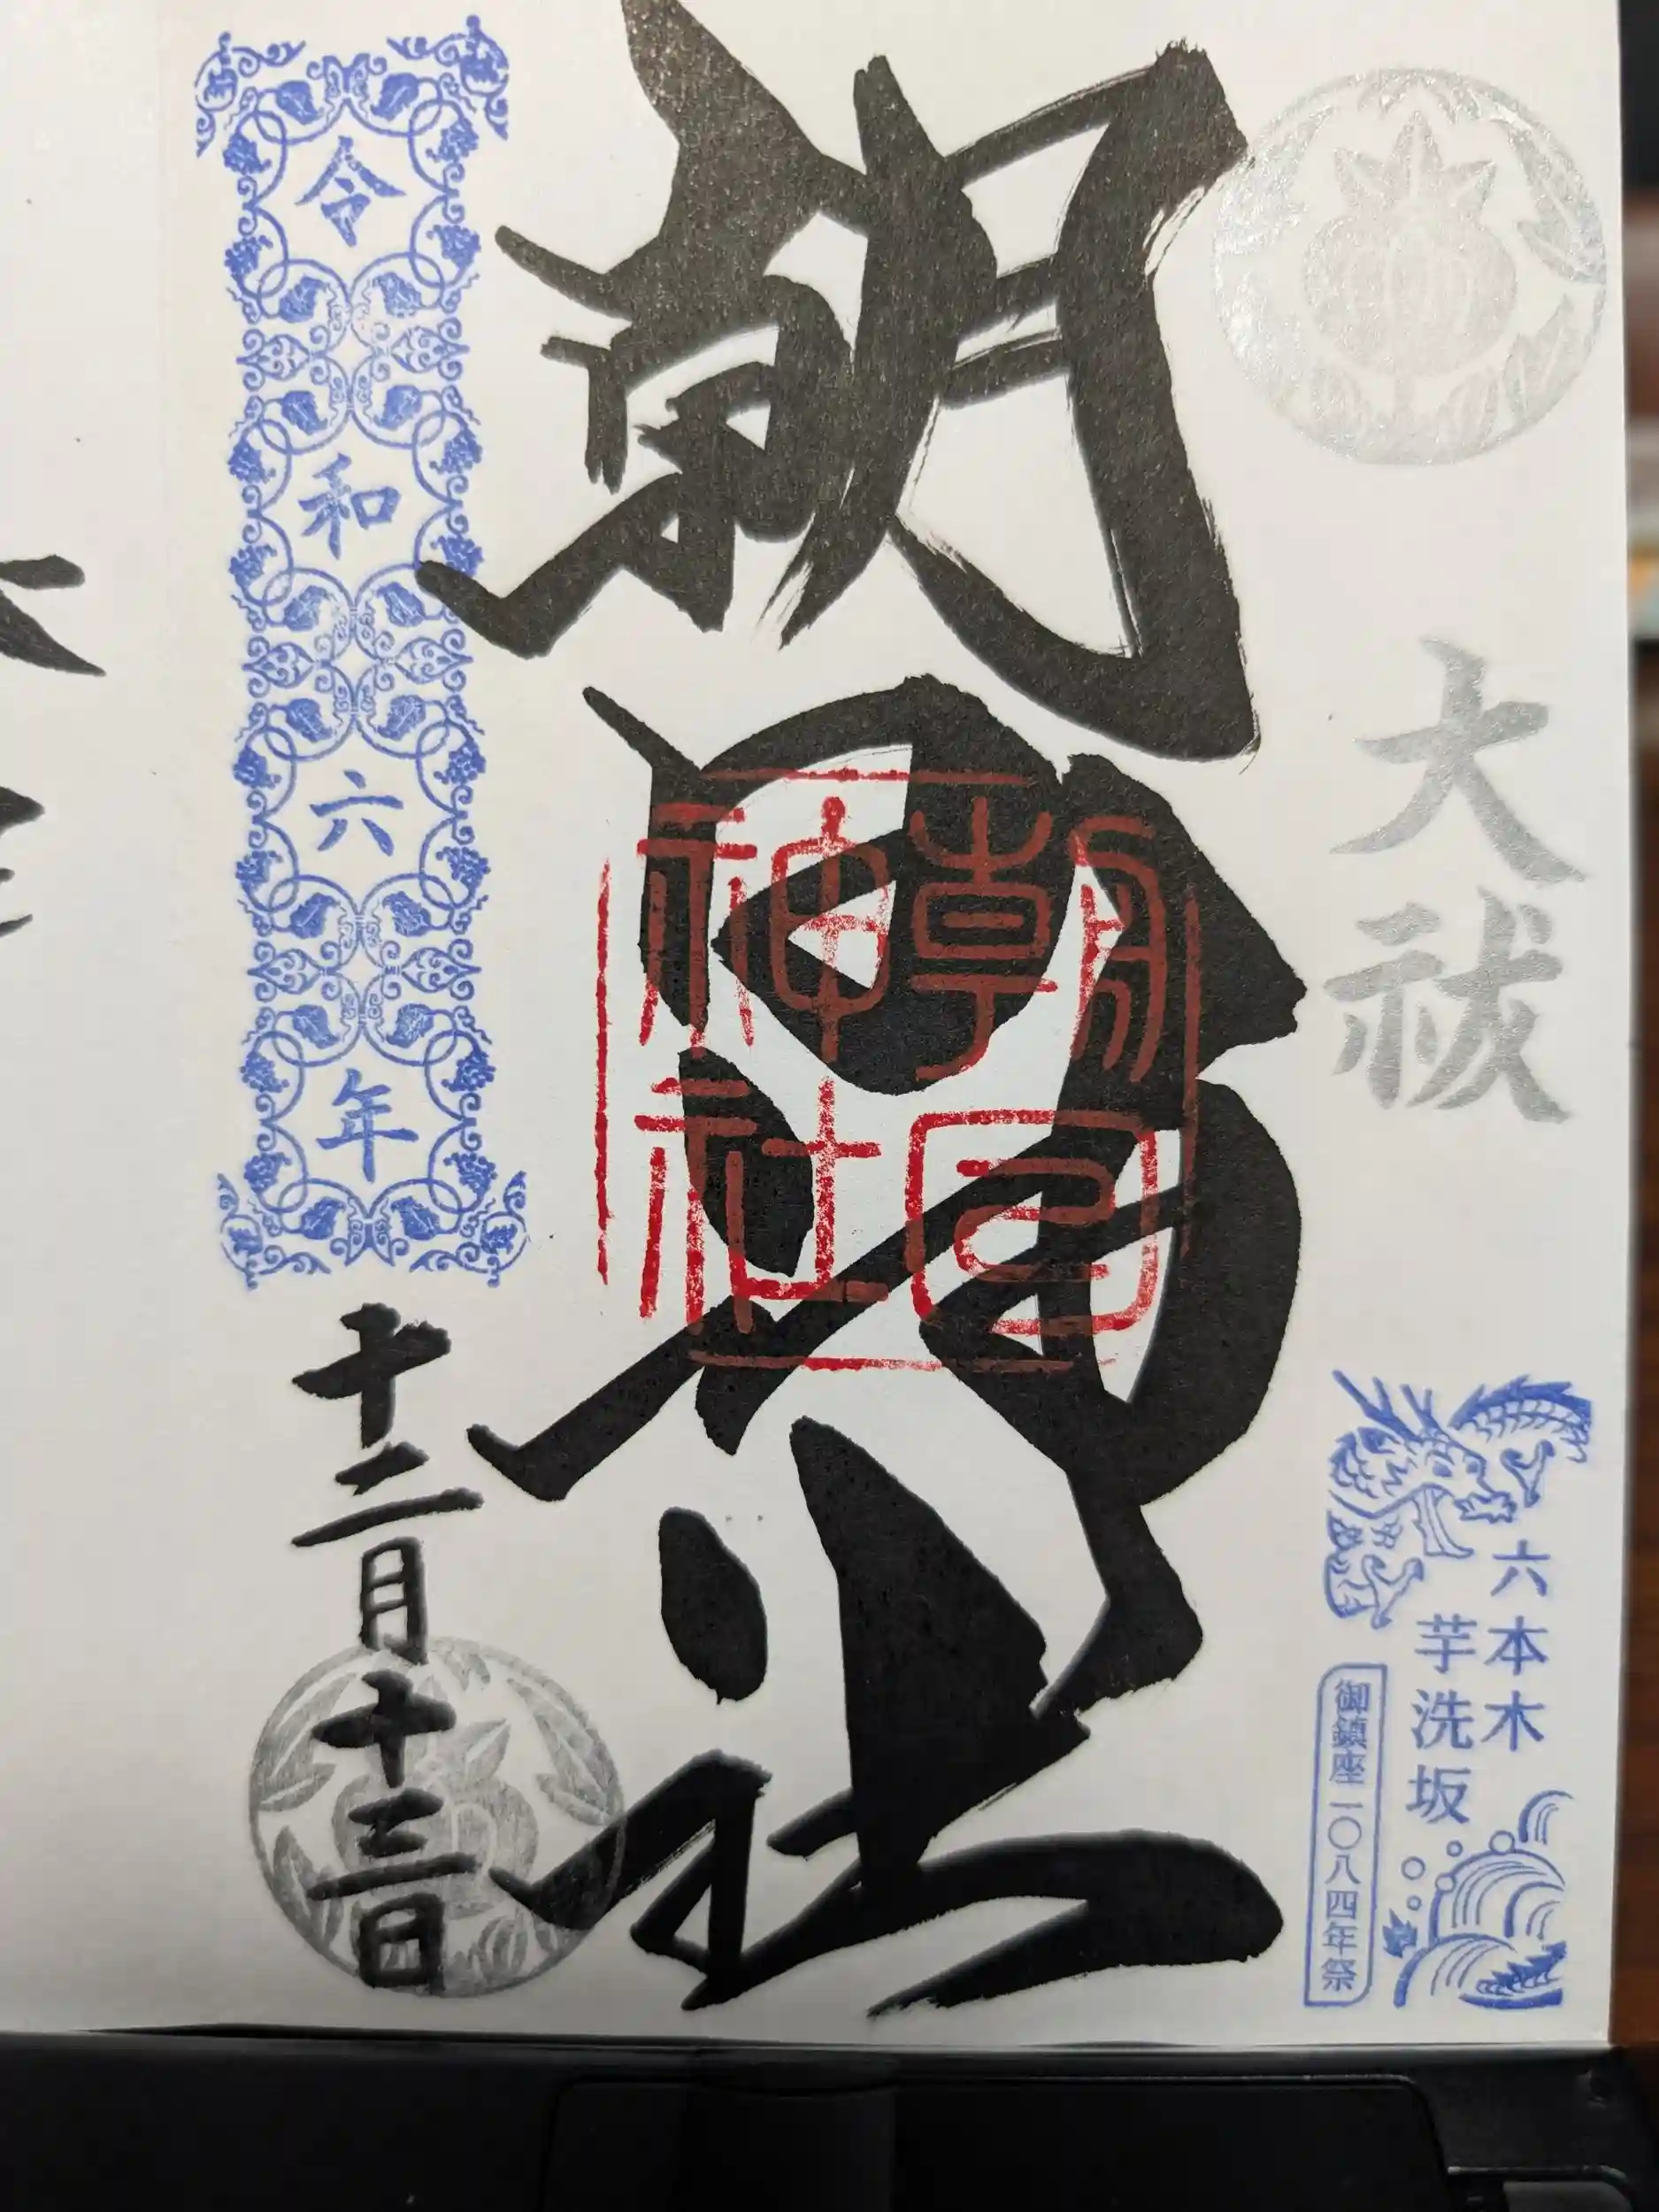 大祓
六本木
芋洗坂
御鎮座一〇八四年祭
朝日神社
朝日神社
令和六年
十二月十三日